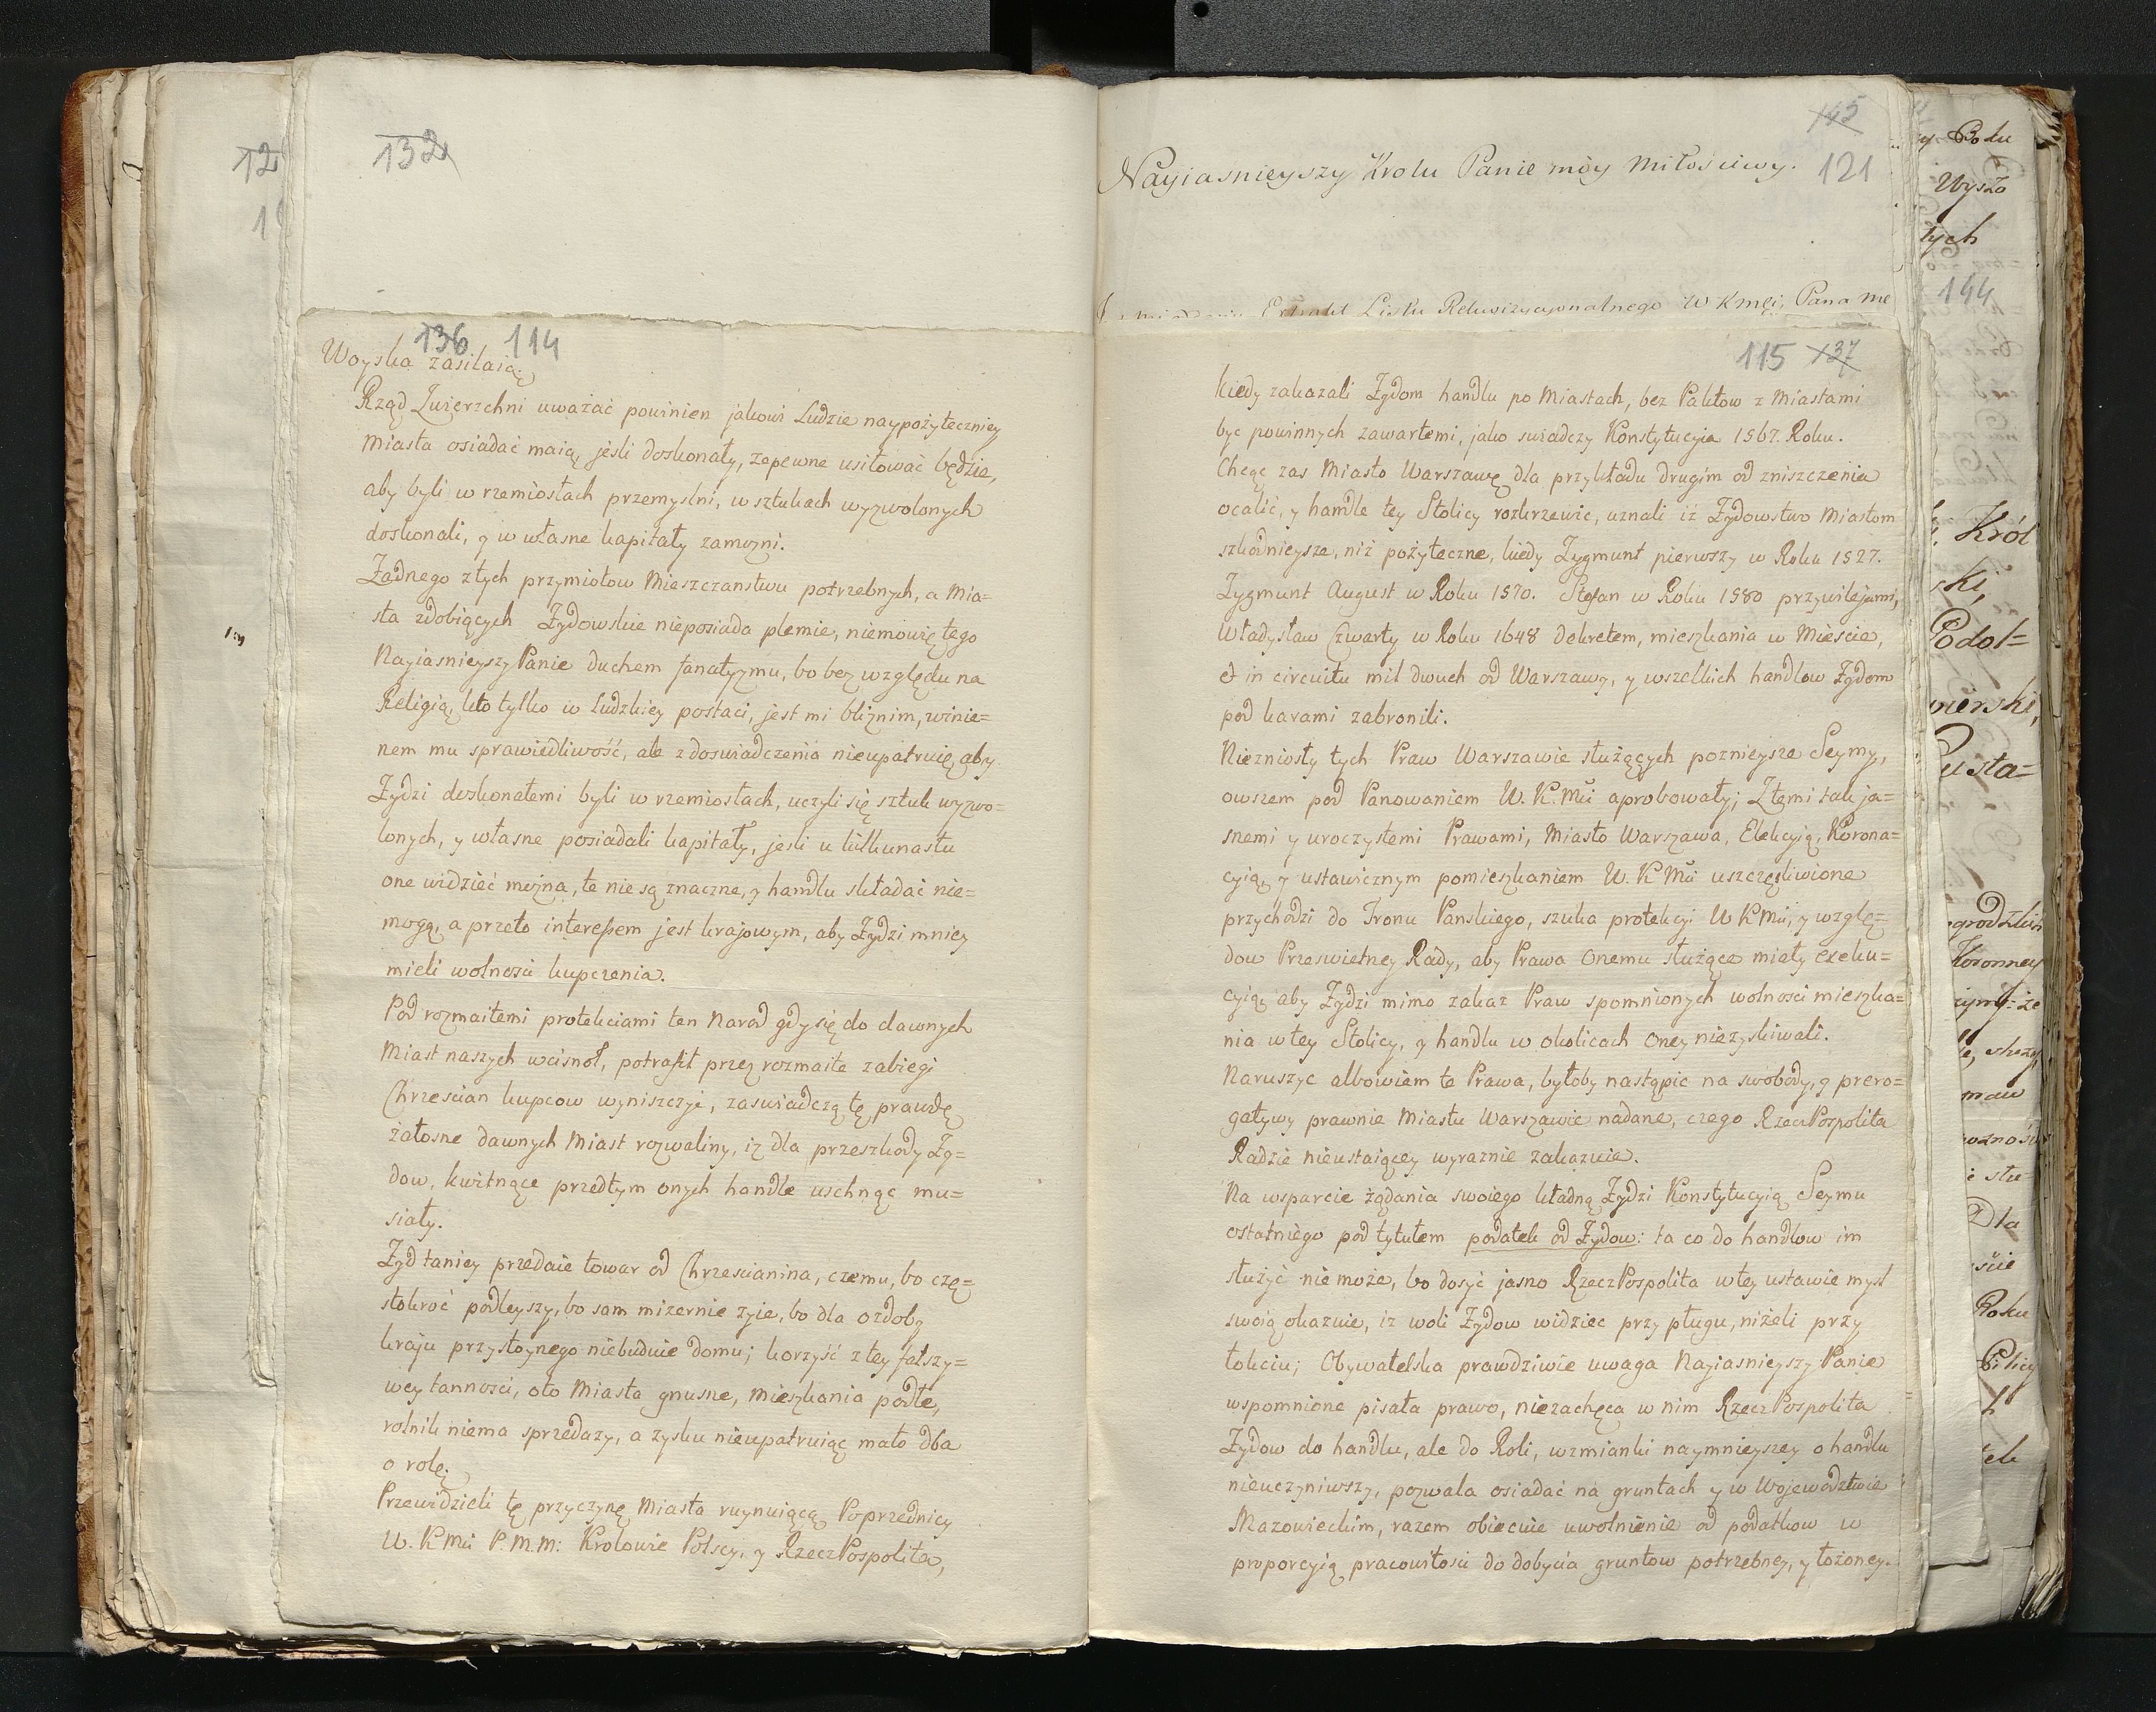 132
136 114
Woyska zasilaią.
Rząd Zwierzchni uważać powinien jakowi Ludzie naypożyteczniey
Miasta osiadać maią, jesli doskonały, zapewne usiłować będzie,
aby byli w rzemiosłach przemyslni, w sztukach wyzwolonych
doskonali, y w własne kapitały zamożni.
Żadnego z tych przymiotow Mieszczanstwu potrzebnych, a Mia=
sta zdobiących Żydowskie nieposiada plemie, niemowię tego
Nayiasnieyszy Panie duchem fanatyzmu, bo bez względu na
Religią, kto tylko w Ludzkiey postaci, jest mi bliznim, winie=
nem mu sprawiedliwość, ale z doswiadczenia nieupatruię, aby
Żydzi doskonałemi byli w rzemiosłach, uczyli się sztuk wyzwo=
lonych, y własne posiadali kapitały, jesli u kilkunastu
one widzieć można, te nie są znaczne, y handlu składać nie=
mogą, a przeto interessem jest krajowym, aby Żydzi mniey
mieli wolności kupczenia.
Pod rozmaitemi protekciami ten Narod gdy się do dawnych
Miast naszych wcisnoł, potrafił przez rozmaite zabiegi
Chrzescian kupcow wyniszczyć, zaswiadczą tę prawdę
żałosne dawnych Miast rozwaliny, iż dla przeszkody Ży=
dow, kwitnące przedtym onych handle uschnąc mu=
siały.
Żyd taniey przedaie towar od Chrzescianina, czemu, bo czę=
stokroć podleyszy, bo sam mizernie zyie, bo dla ozdoby
kraju przystoynego niebuduie domu; korzyść z tey fałszy=
wey tanności, oto Miasta gnusne, Mieszkania podłe,
rolnik niema sprzedazy, a zysku nieupatruiąc mało dba
o rolę.
Przewidzieli tę przyczynę Miasta ruynuiącą Poprzednicy
W. K Mći P. M. M: Krolowie Polscy, y RzeczPospolita,
145
121
Nayiasnieyszy Krolu Panie móy Miłosciwy.
Listu Rekwizycyonalnego W Kmći, Pana me
115 137
kiedy zakazali Żydom handlu po Miastach, bez Paktow z Miastami
byc powinnych zawartemi, jako swiadczy Konstytucyia 1567. Roku.
Chcąc zas Miasto Warszawę dla przykładu drugim od zniszczenia
ocalić, y handle tey Stolicy rozkrzewic, uznali iż Żydowstwo Miastom
szkodnieysze, niż pożyteczne, kiedy Zygmunt pierwszy w Roku 1527.
Zygmunt August w Roku 1570. Stefan w Roku 1580 przywilejami,
Władysław Czwarty w Roku 1648 dekretem, mieszkania w Miescie,
et in circuitu mil dwuch od Warszawy, y wszelkich handlow Żydom
pod karami zabronili.
Niezniosły tych Praw Warszawie służących poznieysze Seymy,
owszem pod Panowaniem W. K. Mći aprobowały; Z temi tak ja=
snemi y uroczystemi Prawami, Miasto Warszawa, Elekcyią, Korona=
cyią, y ustawicznym pomieszkaniem W. K Mći uszczęśliwione
przychodzi do Tronu Panskiego, szuka protekcyi W K Mći, y wzglę=
dow Przeswietney Rady, aby Prawa onemu służące miały exeku=
cyią, aby Żydzi mimo zakaz Praw spomnionych wolnosci mieszka=
nia w tey Stolicy, y handlu w okolicach oney niezyskiwali.
Naruszyc albowiem te Prawa, byłoby nastąpic na swobody, y prero=
gatywy prawnie Miastu Warszawie nadane, czego RzeczPospolita
Radzie nieustaiącey wyraznie zakazuie.
Na wsparcie żądania swoiego kładną Żydzi Konstytucyią Seymu
ostatniego pod tytułem podatek od Żydow: ta co do handlow im
służyć nie może, bo dosyć jasno RzeczPospolita w tey ustawie mysl
swoią okazuie, iż woli Żydow widziec przy pługu, niżeli przy
łokciu; Obywatelska prawdziwie uwaga Nayiasnieyszy Panie
wspomnione pisała prawo, niezachęca w nim RzeczPospolita
Żydow do handlu, ale do Roli, wzmianki naymnieyszey o handlu
nieuczyniwszy, pozwala osiadać na gruntach y w Wojewodztwie
Mazowieckim, razem obiecuie uwolnienie od podatkow w
proporcyią pracowitosci do dobycia gruntow potrzebney, y łożoney.
Roku
Wyszo
tych
144
Król
ski,
Podol=
Pusta=
Koronney
Dla
Roku